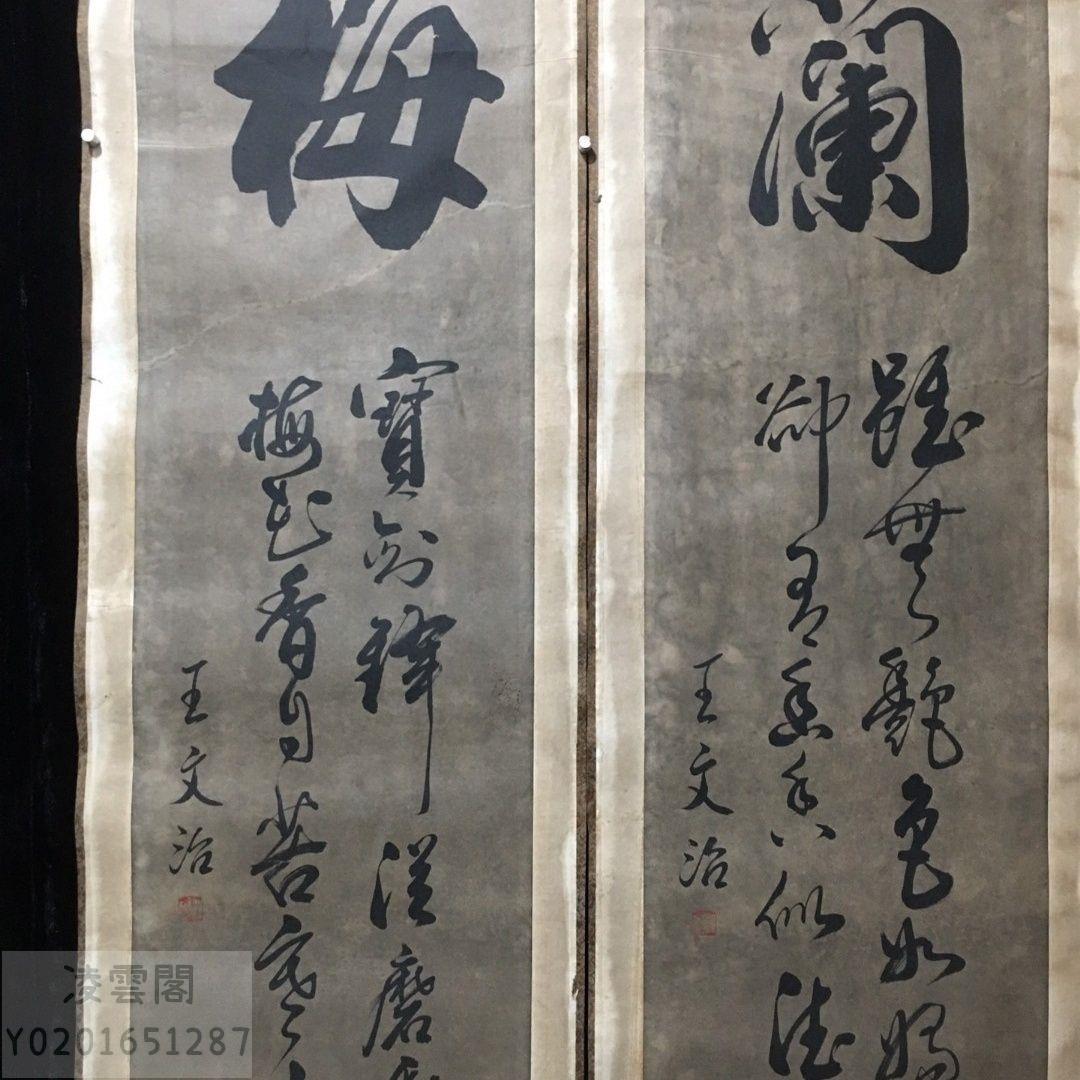 蘭
雖無艷色如嬌
卻有幽香似德
王文治
梅
寶劍鋒從磨
梅花香自苦寒
王文治
凌雲閣
Y0201651287